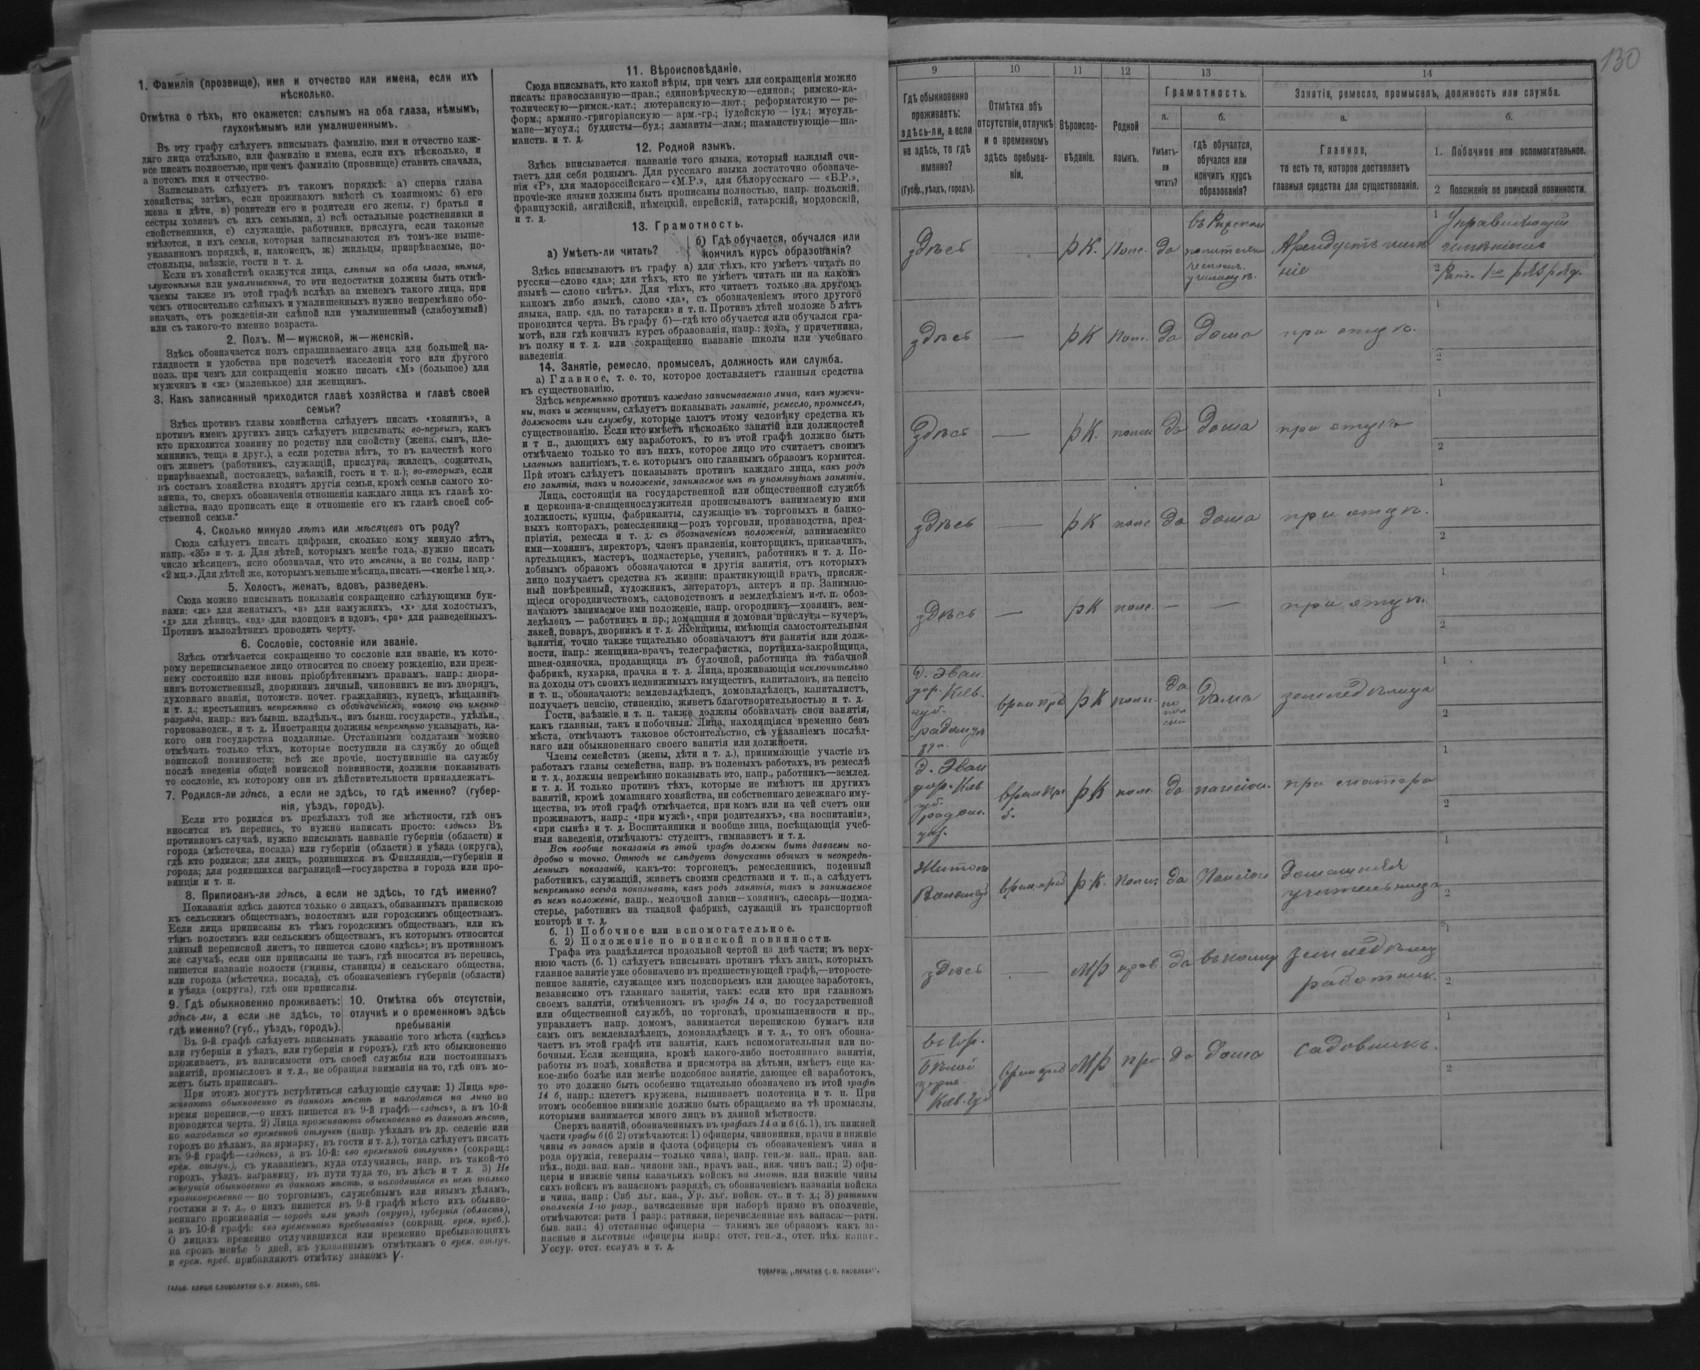 1. Фамилія (прозвище), имя и отчество или имена, если ихъ
нѣсколько.
Отмѣтка о тѣхъ, кто окажется: слѣпымъ на оба глаза, нѣмымъ,
глухонѣмымъ или умалишеннымъ.
Въ эту графу слѣдуетъ вписывать фамилію, имя и отчество каж-
даго лица отдѣльно, или фамилію и имена, если ихъ нѣсколько, и
все писать полностью, при чемъ фамилію (прозвище) ставить сначала,
а потомъ имя и отчество.
Записывать слѣдуетъ въ такомъ порядкѣ: а) сперва глава
хозяйства; затѣмъ, если проживаютъ вмѣстѣ съ хозяиномъ: б) его
жена и дѣти, в) родители его и родители его жены, г) братья и
сестры хозяевъ съ ихъ семьями, д) всѣ остальные родственники и
свойственники, е) служащіе, работники, прислуга, если таковые
имѣются, и ихъ семьи, которыя записываются въ томъ-же выше-
указанномъ порядкѣ, и, наконецъ, ж) жильцы, призрѣваемые, по-
стояльцы, заѣзжіе, гости и т. д.
Если въ хозяйствѣ окажутся лица, слѣпыя на оба глаза, нѣмыя,
глухонѣмыя или умалишенныя, то эти недостатки должны быть отмѣ-
чаемы также въ этой графѣ вслѣдъ за именемъ такого лица, при
чемъ относительно слѣпыхъ и умалишенныхъ нужно непремѣнно обо-
значать, отъ рожденія-ли слѣпой или умалишенный (слабоумный)
или съ такого-то именно возраста.
2. Полъ. М—мужской, ж—женскій.
Здѣсь обозначается полъ спрашиваемаго лица для большей на-
глядности и удобства при подсчетѣ населенія того или другого
пола, при чемъ для сокращенія можно писать «М» (большое) для
мужчинъ и «ж» (маленькое) для женщинъ.
3. Какъ записанный приходится главѣ хозяйства и главѣ своей
семьи?
Здѣсь противъ главы хозяйства слѣдуетъ писать «хозяинъ», а
противъ именъ другихъ лицъ слѣдуетъ вписывать: во-первыхъ, какъ
кто приходится хозяину по родству или свойству (жена, сынъ, пле-
мянникъ, теща и друг.), а если родства нѣтъ, то въ качествѣ кого
онъ живетъ (работникъ, служащій, прислуга, жилецъ, сожитель,
призрѣваемый, постоялецъ, заѣзжій, гость и т. п.); во-вторыхъ, если
въ составъ хозяйства входятъ другія семьи, кромѣ семьи самого хо-
зяина, то, сверхъ обозначенія отношенія каждаго лица къ главѣ хо-
зяйства, надо прописать еще и отношеніе его къ главѣ своей соб-
ственной семьи.
4. Сколько минуло лѣтъ или мѣсяцевъ отъ роду?
Сюда слѣдуетъ писать цифрами, сколько кому минуло лѣтъ,
напр. «35» и т. д. Для дѣтей, которымъ менѣе года, нужно писать
число мѣсяцевъ, ясно обозначая, что это мѣсяцы, а не годы, напр.
«2 мц.». Для дѣтей же, которымъ меньше мѣсяца, писать—«менѣе 1 мц.».
5. Холостъ, женатъ, вдовъ, разведенъ.
Сюда можно вписывать показанія сокращенно слѣдующими бук-
вами: «ж» для женатыхъ, «з» для замужнихъ, «х» для холостыхъ,
«д» для дѣвицъ, «вд» для вдововъ и вдовъ, «рз» для разведенныхъ.
Противъ малолѣтнихъ проводить черту.
6. Сословіе, состояніе или званіе.
Здѣсь отмѣчается сокращенно то сословіе или званіе, къ кото-
рому переписываемое лицо относится по своему рожденію, или преж-
нему состоянію или вновь пріобрѣтеннымъ правамъ, напр.: дворя-
нинъ потомственный, дворянинъ личный, чиновникъ не изъ дворянъ,
духовнаго званія, потомств. почет. гражданинъ, купецъ, мѣщанинъ
и т. д.; крестьянинъ непремѣнно съ обозначеніемъ, какого онъ именно
разряда, напр.: изъ бывш. владѣльч., изъ бывш. государств., удѣльн.,
горнозаводск., и т. д. Иностранцы должны непремѣнно указывать, ка-
кого они государства подданные. Отставными солдатами можно
отмѣчать только тѣхъ, которые поступили на службу до общей
воинской повинности; всѣ же прочіе, поступившіе на службу
послѣ введенія общей воинской повинности, должны показывать
то сословіе, къ которому они въ дѣйствительности принадлежатъ.
7. Родился-ли здѣсь, а если не здѣсь, то гдѣ именно? (губер-
нія, уѣздъ, городъ).
Если кто родился въ предѣлахъ той же мѣстности, гдѣ онъ
вносится въ перепись, то нужно написать просто: «здѣсь» Въ
противномъ случаѣ, нужно вписывать названіе губерніи (области) и
города (мѣстечка, посада) или губерніи (области) и уѣзда (округа),
гдѣ кто родился; для лицъ, родившихся въ Финляндіи,—губерніи и
города; для родившихся заграницей—государства и города или про-
винціи и т. п.
8. Приписанъ-ли здѣсь, а если не здѣсь, то гдѣ именно?
Показанія здѣсь даются только о лицахъ, обязанныхъ припискою
къ сельскимъ обществамъ, волостямъ или городскимъ обществамъ.
Если лица приписаны къ тѣмъ городскимъ обществамъ, или къ
тѣмъ волостямъ или сельскимъ обществамъ, къ которымъ относится
данный переписной листъ, то пишется слово «здѣсь»; въ противномъ
же случаѣ, если они приписаны не тамъ, гдѣ вносятся въ перепись,
пишется названіе волости (гмины, станицы) и сельскаго общества,
или города (мѣстечка, посада), съ обозначеніемъ губерніи (области)
и уѣзда (округа), гдѣ они приписаны.
9. Гдѣ обыкновенно проживаетъ:
здѣсь-ли, а если не здѣсь, то
гдѣ именно? (губ., уѣздъ, городъ).
10. Отмѣтка объ отсутствіи,
отлучкѣ и о временномъ здѣсь
пребываніи
Въ 9-й графѣ слѣдуетъ вписывать указаніе того мѣста («здѣсь»
или губернія и уѣздъ, или губернія и городъ), гдѣ кто обыкновенно
проживаетъ, въ зависимости отъ своей службы или постоянныхъ
занятій, промысловъ и т. д., не обращая вниманія на то, гдѣ онъ мо-
жетъ быть приписанъ.
При этомъ могутъ встрѣтиться слѣдующіе случаи: 1) Лица про-
живаютъ обыкновенно въ данномъ мѣстѣ и находятся на лицо во
время переписи,—о нихъ пишется въ 9-й графѣ—«здѣсь», а въ 10-й
проводится черта. 2) Лица проживаютъ обыкновенно въ данномъ мѣстѣ,
но находятся во временной отлучкѣ (напр. уѣхалъ въ др. селеніе или
городъ по дѣламъ, на ярмарку, въ гости и т. д.), тогда слѣдуетъ писать
въ 9-й графѣ—«здѣсь», а въ 10-й: «во временной отлучкѣ» (сокращ.:
врем. отлуч.), съ указаніемъ, куда отлучились, напр. въ такой-то
городъ, уѣздъ, заграницу, въ пути туда то, въ лѣсъ и т. д. 3) Не
живущія обыкновенно въ данномъ мѣстѣ, а находящіяся въ немъ только
кратковременно — по торговымъ, служебнымъ или инымъ дѣламъ,
гостями и т. д., о нихъ пишется въ 9-й графѣ мѣсто ихъ обыкно-
веннаго проживанія — городъ или уѣздъ (округъ), губернія (область),
а въ 10-й графѣ: «во временномъ пребываніи» (сокращ. врем. преб.).
О лицахъ временно отлучившихся или временно пребывающихъ
на срокъ менѣе 5 дней, къ указаннымъ отмѣткамъ о врем. отлуч.
и врем. преб. прибавляютъ отмѣтку знакомъ V.
ГАЛЬВ. КЛИШЕ СЛОВОЛИТНИ О. И. ЛЕМАНЪ, СПБ.
11. Вѣроисповѣданіе.
Сюда вписывать, кто какой вѣры, при чемъ для сокращенія можно
писать: православную—прав.; единовѣрческую—единов.; римско-ка-
толическую—римск.-кат.; лютеранскую—лют.; реформатскую — ре-
форм.; армяно-григоріанскую — арм.-гр.; іудейскую — іуд.; мусуль-
мане—мусул.; буддисты—буд.; ламаиты—лам.; шаманствующіе—ша-
манств. и т. д.
12. Родной языкъ.
Здѣсь вписывается названіе того языка, который каждый счи-
таетъ для себя роднымъ. Для русскаго языка достаточно обозначе-
нія «Р», для малороссійскаго—«М.Р.», для бѣлорусскаго — «Б.Р.»,
прочіе-же языки должны быть прописаны полностью, напр. польскій,
французскій, англійскій, нѣмецкій, еврейскій, татарскій, мордовскій,
и т. д.
13. Грамотность.
а) Умѣетъ-ли читать?
б) Гдѣ обучается, обучался или
кончилъ курсъ образованія?
Здѣсь вписываютъ въ графу а) для тѣхъ, кто умѣетъ читать по
русски—слово «да»; для тѣхъ, кто не умѣетъ читать ни на какомъ
языкѣ—слово «нѣтъ». Для тѣхъ, кто читаетъ только на другомъ
какомъ либо языкѣ, слово «да», съ обозначеніемъ этого другого
языка, напр. «да, по татарски» и т. п. Противъ дѣтей моложе 5 лѣтъ
проводится черта. Въ графу б)—гдѣ кто обучается или обучался гра-
мотѣ, или гдѣ кончилъ курсъ образованія, напр.: дома, у причетника,
въ полку и т. д. или сокращенно названіе школы или учебнаго
заведенія.
14. Занятіе, ремесло, промыселъ, должность или служба.
а) Главное, т. е. то, которое доставляетъ главныя средства
къ существованію.
Здѣсь непремѣнно противъ каждаго записываемаго лица, какъ мужчи-
ны, такъ и женщины, слѣдуетъ показывать занятіе, ремесло, промыселъ,
должность или службу, которые даютъ этому человѣку средства къ
существованію. Если кто имѣетъ нѣсколько занятій или должностей
и т п., дающихъ ему заработокъ, то въ этой графѣ должно быть
отмѣчаемо только то изъ нихъ, которое лицо это считаетъ своимъ
главнымъ занятіемъ, т. е. которымъ оно главнымъ образомъ кормится.
При этомъ слѣдуетъ показывать противъ каждаго лица, какъ родъ
его занятія, такъ и положеніе, занимаемое имъ въ упомянутомъ занятіи.
Лица, состоящія на государственной или общественной службѣ
и церковно-и-священнослужители прописываютъ занимаемую ими
должность; купцы, фабриканты, служащіе въ торговыхъ и банко-
выхъ конторахъ, ремесленники—родъ торговли, производства, пред-
пріятія, ремесла и т. д.: съ обозначеніемъ положенія, занимаемаго
ими—хозяинъ, директоръ, членъ правленія, конторщикъ, приказчикъ,
артельщикъ, мастеръ, подмастерье, ученикъ, работникъ и т. д. По-
добнымъ образомъ обозначаются и другія занятія, отъ которыхъ
лицо получаетъ средства къ жизни: практикующій врачъ, присяж-
ный повѣренный, художникъ, литераторъ, актеръ и пр. Занимаю-
щіеся огородничествомъ, садоводствомъ и земледѣліемъ и т. п. обоз-
начаютъ занимаемое ими положеніе, напр. огородникъ—хозяинъ, зем-
ледѣлецъ — работникъ и пр.; домашняя и домовая прислуга—кучеръ,
лакей, поваръ, дворникъ и т. д. Женщины, имѣющія самостоятельныя
занятія, точно также тщательно обозначаютъ эти занятія или долж-
ности, напр.: женщина-врачъ, телеграфистка, портниха-закройщица,
швея-одиночка, продавщица въ булочной, работница на табачной
фабрикѣ, кухарка, прачка и т. д. Лица, проживающія исключительно
на доходы отъ своихъ недвижимыхъ имуществъ, капиталовъ, на пенсію
и т. п., обозначаютъ: землевладѣлецъ, домовладѣлецъ, капиталистъ,
получаетъ пенсію, стипендію, живетъ благотворительностью и т. д.
Гости, заѣзжіе и т. п. также должны обозначать свои занятія,
какъ главныя, такъ и побочныя. Лица, находящіяся временно безъ
мѣста, отмѣчаютъ таковое обстоятельство, съ указаніемъ послѣд-
няго или обыкновеннаго своего занятія или должности.
Члены семействъ (жены, дѣти и т. д.), принимающіе участіе въ
работахъ главы семейства, напр. въ полевыхъ работахъ, въ ремеслѣ
и т. д., должны непремѣнно показывать это, напр., работникъ—землед.
и т. д. И только противъ тѣхъ, которые не имѣютъ ни другихъ
занятій, кромѣ домашняго хозяйства, ни собственнаго денежнаго иму-
щества, въ этой графѣ отмѣчается, при комъ или на чей счетъ они
проживаютъ, напр.: «при мужѣ», «при родителяхъ», «на воспитаніи»,
«при сынѣ» и т. д. Воспитанники и вообще лица, посѣщающія учеб-
ныя заведенія, отмѣчаютъ: студентъ, гимназистъ и т. д.
Всѣ вообще показанія въ этой графѣ должны быть даваемы по-
дробно и точно. Отнюдь не слѣдуетъ допускать общихъ и неопредѣ-
ленныхъ показаній, какъ-то: торговецъ, ремесленникъ, поденный
работникъ, служащій, живетъ своими средствами и т. п., а слѣдуетъ
непремѣнно всегда показывать, какъ родъ занятія, такъ и занимаемое
въ немъ положеніе, напр., мелочной лавки—хозяинъ, слесарь—подма-
стерье, работникъ на ткацкой фабрикѣ, служащій въ транспортной
конторѣ и т. д.
б. 1) Побочное или вспомогательное.
б. 2) Положеніе по воинской повинности.
Графа эта раздѣляется продольной чертой на двѣ части; въ верх-
нюю часть (б. 1) слѣдуетъ вписывать противъ тѣхъ лицъ, которыхъ
главное занятіе уже обозначено въ предшествующей графѣ,—второсте-
пенное занятіе, служащее имъ подспорьемъ или дающее заработокъ,
независимо отъ главнаго занятія, такъ: если кто при главномъ
своемъ занятіи, отмѣченномъ въ графѣ 14 а, по государственной
или общественной службѣ, по торговлѣ, промышленности и пр.,
управляетъ напр. домомъ, занимается перепискою бумагъ или
самъ онъ землевладѣлецъ, домовладѣлецъ и т. д., то онъ обозна-
чаетъ въ этой графѣ эти занятія, какъ вспомогательныя или по-
бочныя. Если женщина, кромѣ какого-либо постояннаго занятія,
работы въ полѣ, хозяйства и присмотра за дѣтьми, имѣетъ еще ка-
кое-либо болѣе или менѣе подсобное занятіе, дающее ей заработокъ,
то это должно быть особенно тщательно обозначено въ этой графѣ
14 б, напр.: плететъ кружева, вышиваетъ полотенца и т. п. При
этомъ особенное вниманіе должно быть обращаемо на тѣ промыслы,
которыми занимается много лицъ въ данной мѣстности.
Сверхъ занятій, обозначенныхъ въ графахъ 14 а и б (б. 1), въ нижней
части графы б (б 2) отмѣчаются: 1) офицеры, чиновники, врачи и нижніе
чины въ запасѣ арміи и флота (офицеры съ обозначеніемъ чина и
рода оружія, генералы—только чина), напр. ген.-м. зап., прап. зап.
пѣх., подп. зап. кав., чиновн зап., врачъ зап., ниж. чинъ зап.; 2) офи-
церы и нижніе чины казачьихъ войскъ на льготѣ, или нижніе чины
сихъ войскъ въ запасномъ разрядѣ, съ обозначеніемъ названія войска
и чина, напр.: Сиб. льг. каз., Ур. льг. войск. ст., и т. д.; 3) ратники
ополченія 1-го разр., зачисленные при наборѣ прямо въ ополченіе,
отмѣчаются: ратн 1 разр.; ратники, перечисленные изъ запаса:—ратн.
быв. зап.; 4) отставные офицеры — такимъ же образомъ какъ за-
пасные и льготные офицеры напр.: отст. ген.-л., отст. пѣх. капит.,
Уссур. отст. есаулъ и т. д.
ТОВАРИЩ. „ПЕЧАТНЯ С. П. ЯКОВЛЕВА".
130
9 10 11 12 13 14
Гдѣ обыкновенно
проживаетъ:
здѣсь-ли, а если
не здѣсь, то гдѣ
именно?
(Губ., уѣздъ, городъ).
Отмѣтка объ
отсутствіи, отлучкѣ
и о временномъ
здѣсь пребыва-
ніи.
Вѣроиспо-
вѣданіе.
Родной
языкъ.
Грамотность.
а.
Умѣетъ-
ли
читать?
б.
Гдѣ обучается,
обучался или
кончилъ курсъ
образованія?
Занятія, ремесло, промыселъ, должность или служба.
а.
Главное,
то есть то, которое доставляетъ
главныя средства для существованія.
б.
1. Побочное или вспомогательное.
2 Положеніе по воинской повинности.
здѣсь — РК. Пол. да 1 Управляющій
2
здѣсь — РК Пол. да дома при отцѣ. 1
2
здѣсь — РК. пол. да дома при отцѣ 1
2
здѣсь — РК пол. да дома при отцѣ. 1
2
здѣсь — РК пол. — — при отцѣ. 1
2
РК пол. да дома 1
2
РК пол. да пансіон. 1
2
Житом. РК. Пол. да Пансіон Домашняя
учительница 1
2
здѣсь МР прав. да работник. 1
2
МР да дома Садовникъ. 1
2